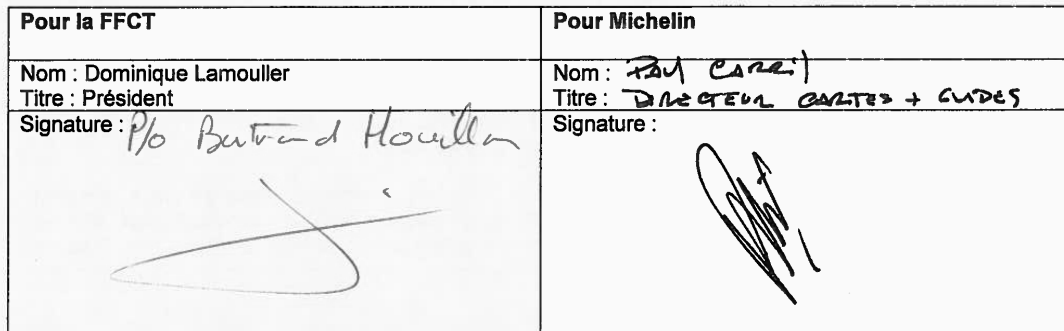 Pour la FFCT
Pour Michelin
Nom : Dominique Lamouller
Titre : Président
Nom : Paul CARRil
Titre : DIRECTEUR CARTES + GUIDES
Signature : P/o Bertrand Houillon
Signature :